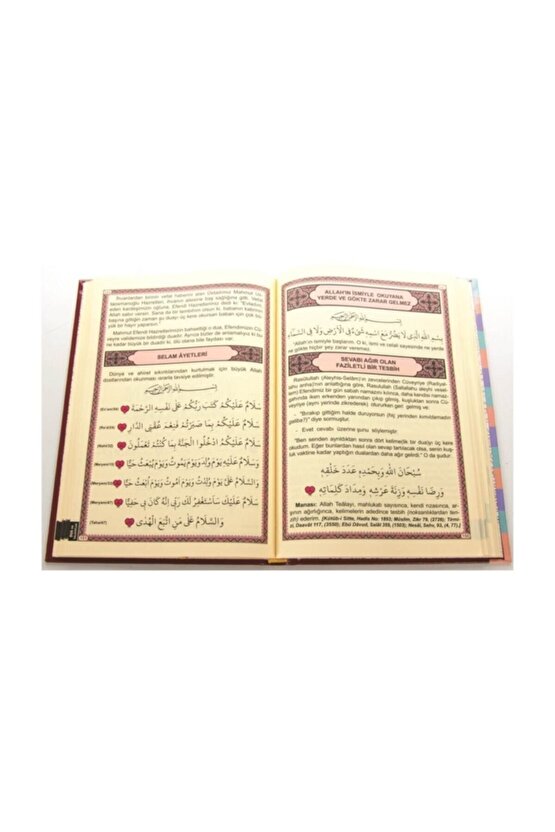 İhvanlardan birinin vefat haberini alan Üstadımız Mahmud Us-
taosmanoğlu Hazretleri, ihvanın ailesine baş sağlığına gitti. Vefat
eden kardeşimizin oğluna, Efendi Hazretlerimiz dedi ki: "Evladım,
Allah sabır versin. Sana da bir tembihim olsun ki, babanın kabrinin
başına gittiğin zaman şu duayı üç kere okursan baban için çok bü-
yük bir hayır yaparsın."
Mahmud Efendi Hazretlerimizin bahsettiği o dua, Efendimizin Cü-
veyriye validemize bildirdiği duadır. Ayrıca bizler de anlamalıyız ki bu
ne kadar büyük bir duadır ki, ölü olana bile faydası var.
SELAM ÂYETLERİ
Dünya ve ahiret sıkıntılarından kurtulmak için büyük Allah
dostlarından okunması ısrarla tavsiye edilmiştir.
بِسْمِ اللهِ الرَّحْمٰنِ الرَّحِيمِ
سَلَامٌ عَلَيْكُمْ كَتَبَ رَبُّكُمْ عَلٰى نَفْسِهِ الرَّحْمَةَ (En'am/54)
سَلَامٌ عَلَيْكُمْ بِمَا صَبَرْتُمْ فَنِعْمَ عُقْبَى الدَّارِ (Ra'd/24)
سَلَامٌ عَلَيْكُمُ ادْخُلُوا الْجَنَّةَ بِمَا كُنْتُمْ تَعْمَلُونَ (Nahl/32)
وَسَلَامٌ عَلَيْهِ يَوْمَ وُلِدَ وَيَوْمَ يَمُوتُ وَيَوْمَ يُبْعَثُ حَيًّا (Meryem/15)
وَالسَّلَامُ عَلَيَّ يَوْمَ وُلِدْتُ وَيَوْمَ أَمُوتُ وَيَوْمَ أُبْعَثُ حَيًّا (Meryem/33)
سَلَامٌ عَلَيْكَ سَأَسْتَغْفِرُ لَكَ رَبِّي إِنَّهُ كَانَ بِي حَفِيًّا (Meryem/47)
وَالسَّلَامُ عَلٰى مَنِ اتَّبَعَ الْهُدٰى (Taha/47)
ALLAH'IN İSMİYLE OKUYANA
YERDE VE GÖKTE ZARAR GELMEZ
بِسْمِ اللهِ الرَّحْمٰنِ الرَّحِيمِ
بِسْمِ اللهِ الَّذِي لَا يَضُرُّ مَعَ اسْمِهِ شَيْءٌ فِي الْأَرْضِ وَلَا فِي السَّمَاءِ
"Allah'ın ismiyle başlarım. O Allah ki, ismi ve celali sayesinde ne yerde
ne gökte hiçbir şey zarar veremez.
SEVABI AĞIR OLAN
FAZİLETLİ BİR TESBİH
Rasûlullah (Aleyhis-Selâm)'ın zevcelerinden Cüveyriye (Radiyal-
lahu anha)'nın anlattığına göre, Rasulullah (Sallallahu aleyhi vesel-
lem) Efendimiz bir gün sabah namazını kılınca, daha kendisi namaz-
gahında iken erkenden yanından çıkıp gitmiş, kuşluktan sonra Cü-
veyriye (aynı yerinde zikrederek) otururken geri gelmiş ve:
- "Bırakıp gittiğim halde duruyorsun (hiç yerinden kımıldamadın
galiba?)" diye sormuştur.
- Evet cevabı üzerine şunu söylemiştir:
"Ben senden ayrıldıktan sonra dört kelimelik bir duayı üç kere
okudum. Eğer bunlardan hasıl olan sevap tartılacak olsa, senin kuş-
luk vaktine kadar yaptığın dualardan daha ağır gelirdi." O da şudur:
سُبْحَانَ اللهِ وَبِحَمْدِهِ عَدَدَ خَلْقِهِ
وَرِضَا نَفْسِهِ وَزِنَةَ عَرْشِهِ وَمِدَادَ كَلِمَاتِهِ
Manası: Allah Teâlayı, mahlukatı sayısınca, kendi rızasınca, ar-
şının ağırlığınca, kelimelerin adedince tesbih (noksanlıklardan ten-
zih) ederim. (Kütüb-i Sitte, Hadis No: 1852; Müslim, Zikr 79, (2726); Tirmi-
zi, Daavât 117, (3550); Ebû Dâvud, Salât 359, (1503); Nesâî, Sehv, 93, (4, 77).)